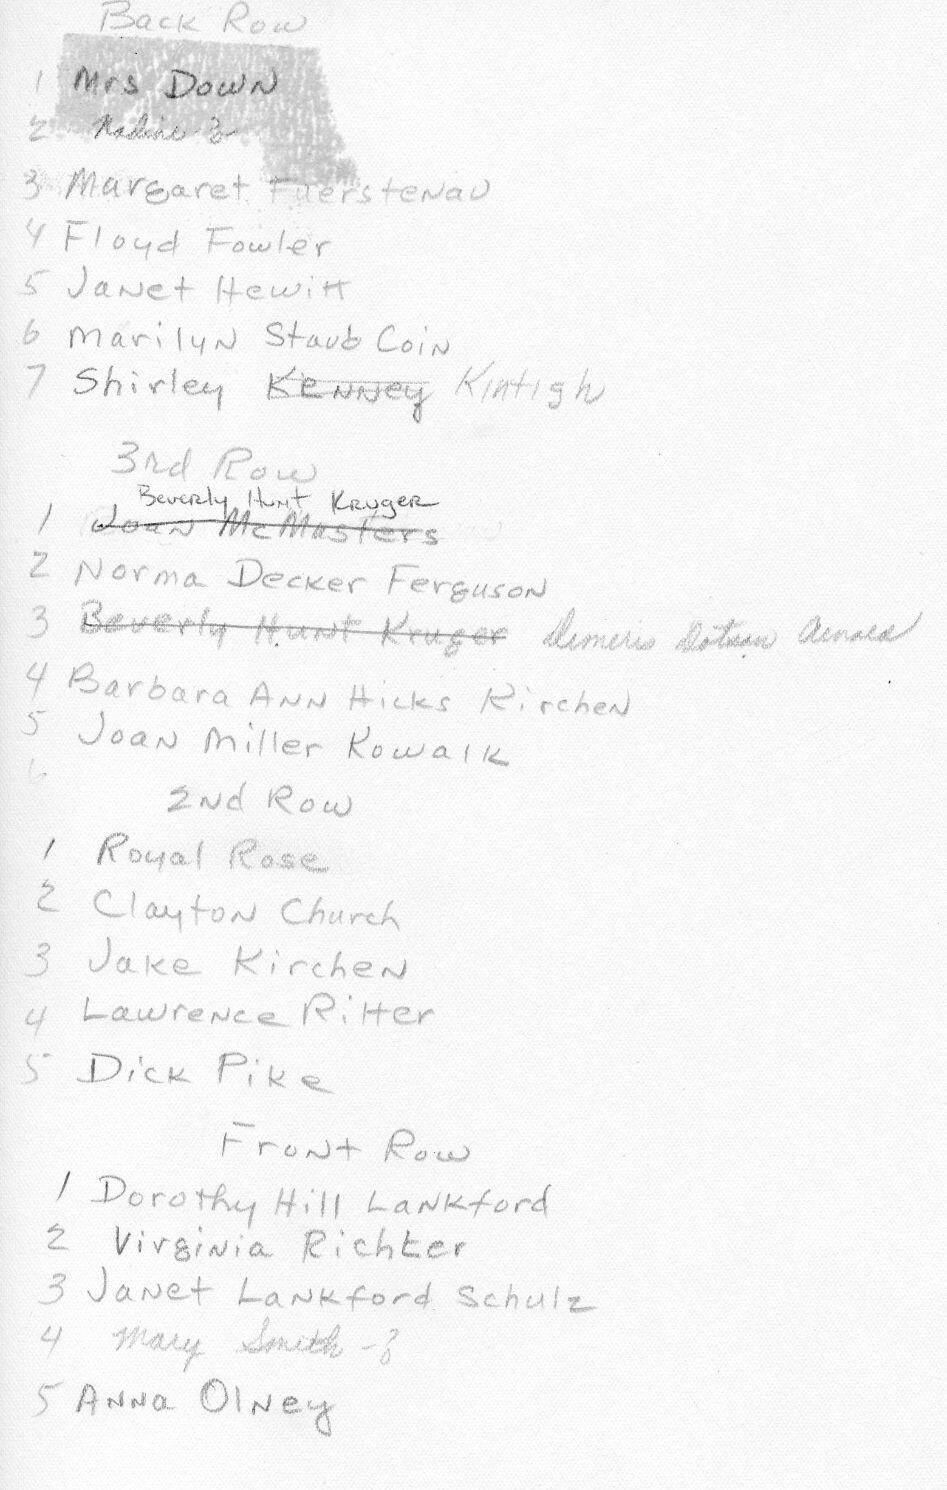 Back Row
1 Mrs Down
2 Nadine - ?
3 Margaret Fuerstenau
4 Floyd Fowler
5 Janet Hewitt
6 Marilyn Staub Coin
7 Shirley Kenney Kintigh
3rd Row
Beverly Hunt Kruger
1 Joan McMasters
2 Norma Decker Ferguson
3 Beverly Hunt Kruger Demeris Dotson
4 Barbara Ann Hicks Kirchen
5 Joan Miller Kowalk
6
2nd Row
1 Royal Rose
2 Clayton Church
3 Jake Kirchen
4 Lawrence Ritter
5 Dick Pike
Front Row
1 Dorothy Hill Lankford
2 Virginia Richter
3 Janet Lankford Schulz
4 Mary Smith - ?
5 Anna Olney